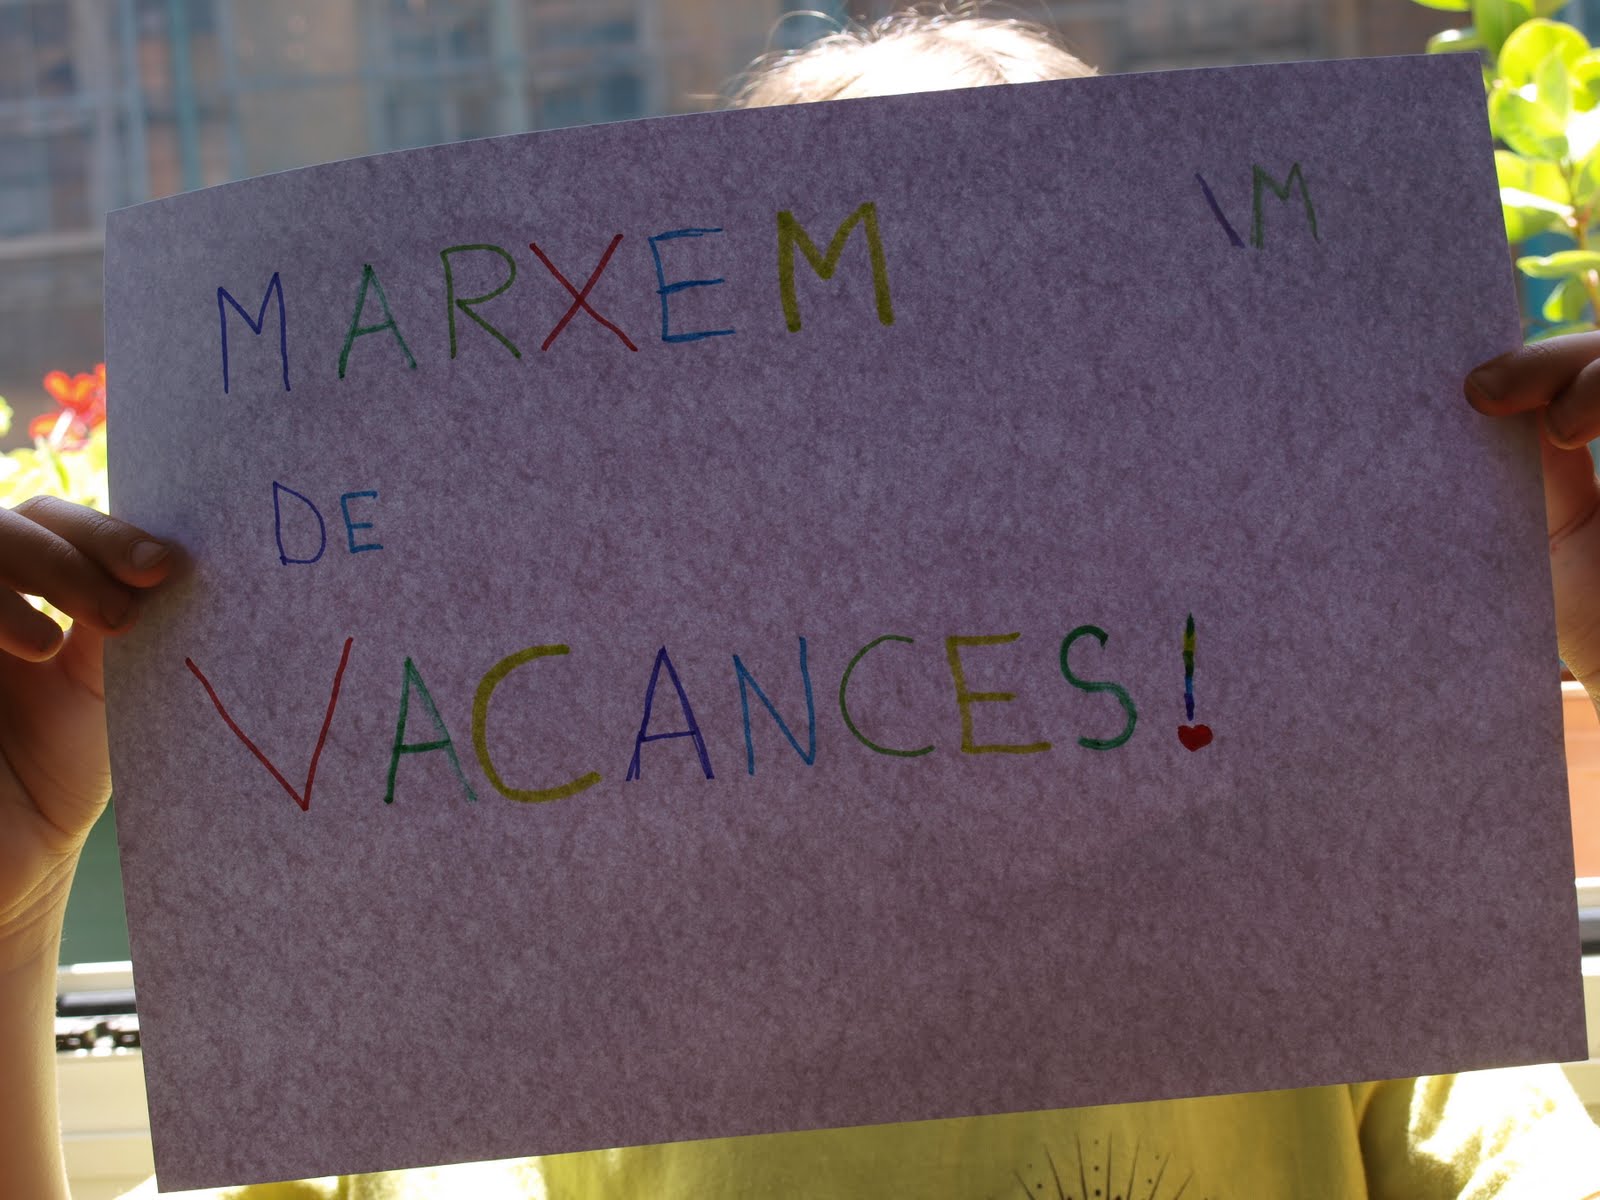 MARXEM
DE
VACANCES!